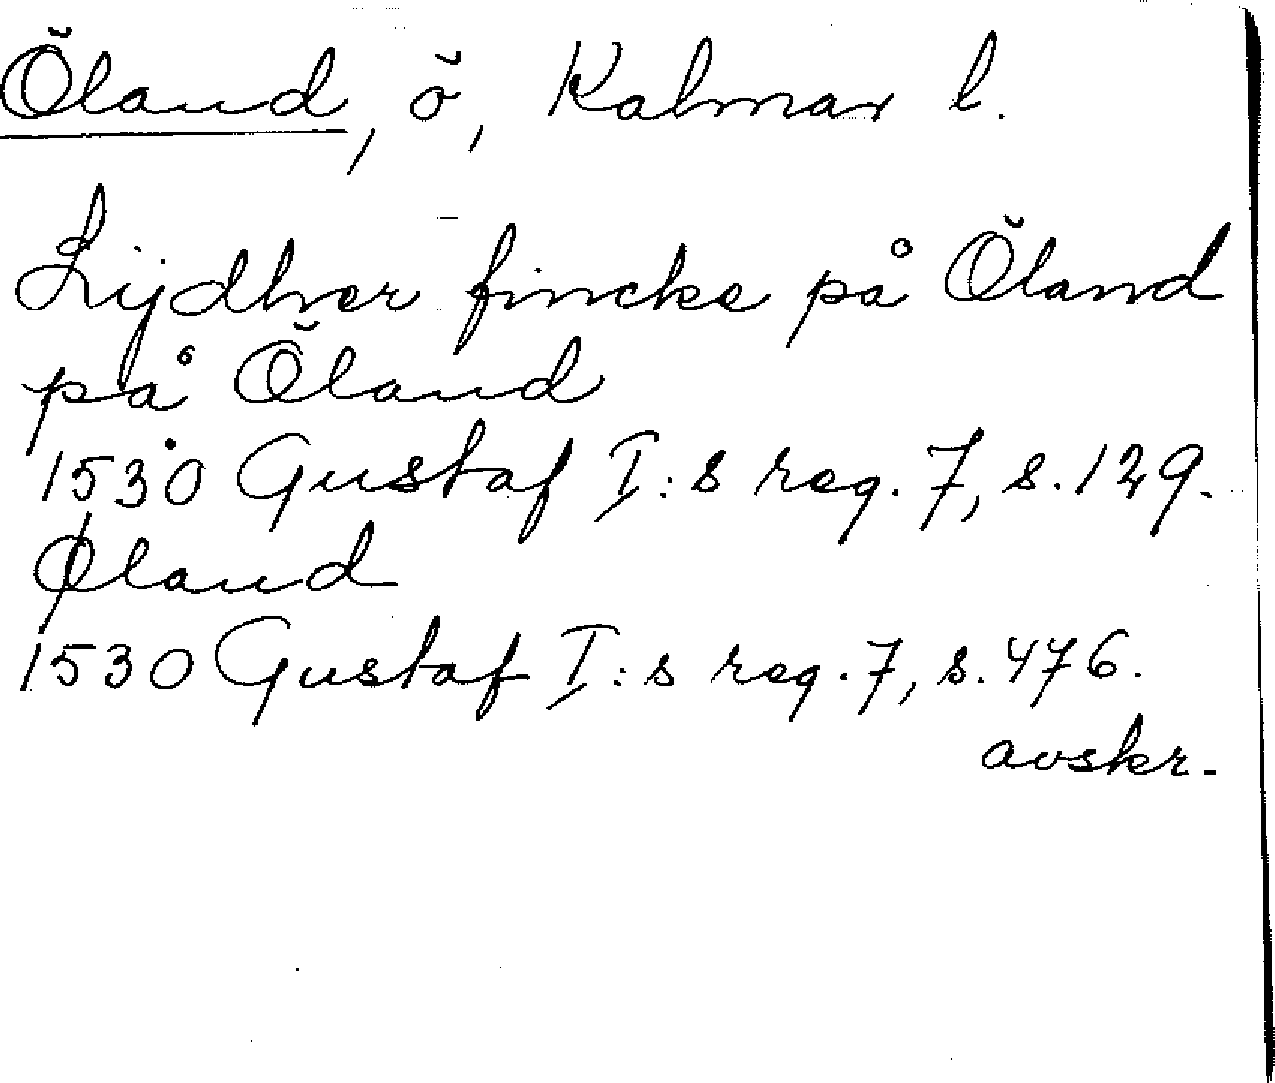 Öland, ö, Kalmar l.
Lijdher fincke på Öland
på Öland
1530 Gustaf I:s reg. 7, s. 129.
Øland
1530 Gustaf I:s reg. 7, s. 476.
avskr.